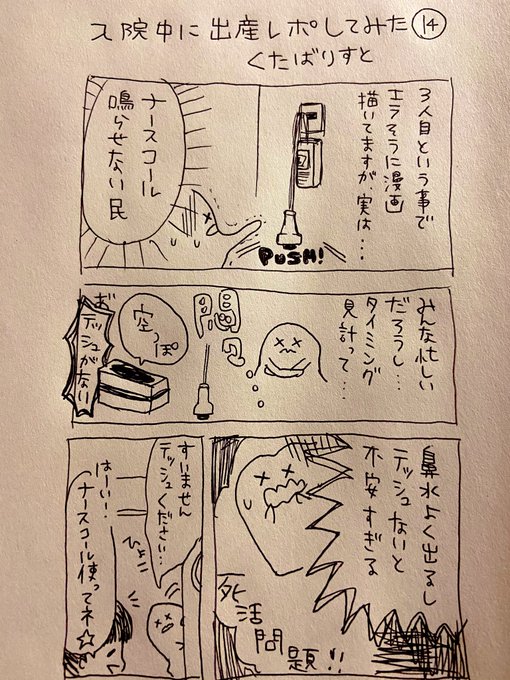 入院中に出産レポしてみた⑭
くたばりすと
3人目という事で
エラそうに漫画
描いてますが、実は…
PUSH!
ナースコール
鳴らせない民
みんな忙しい
だろうし…
タイミング
見計って…
空っぽ
あ
テッシュがない
鼻水よく出るし
テッシュないと
不安すぎる
死活問題!!
すいません
テッシュください…
ひょこ
はーい!
ナースコール使ってネ☆